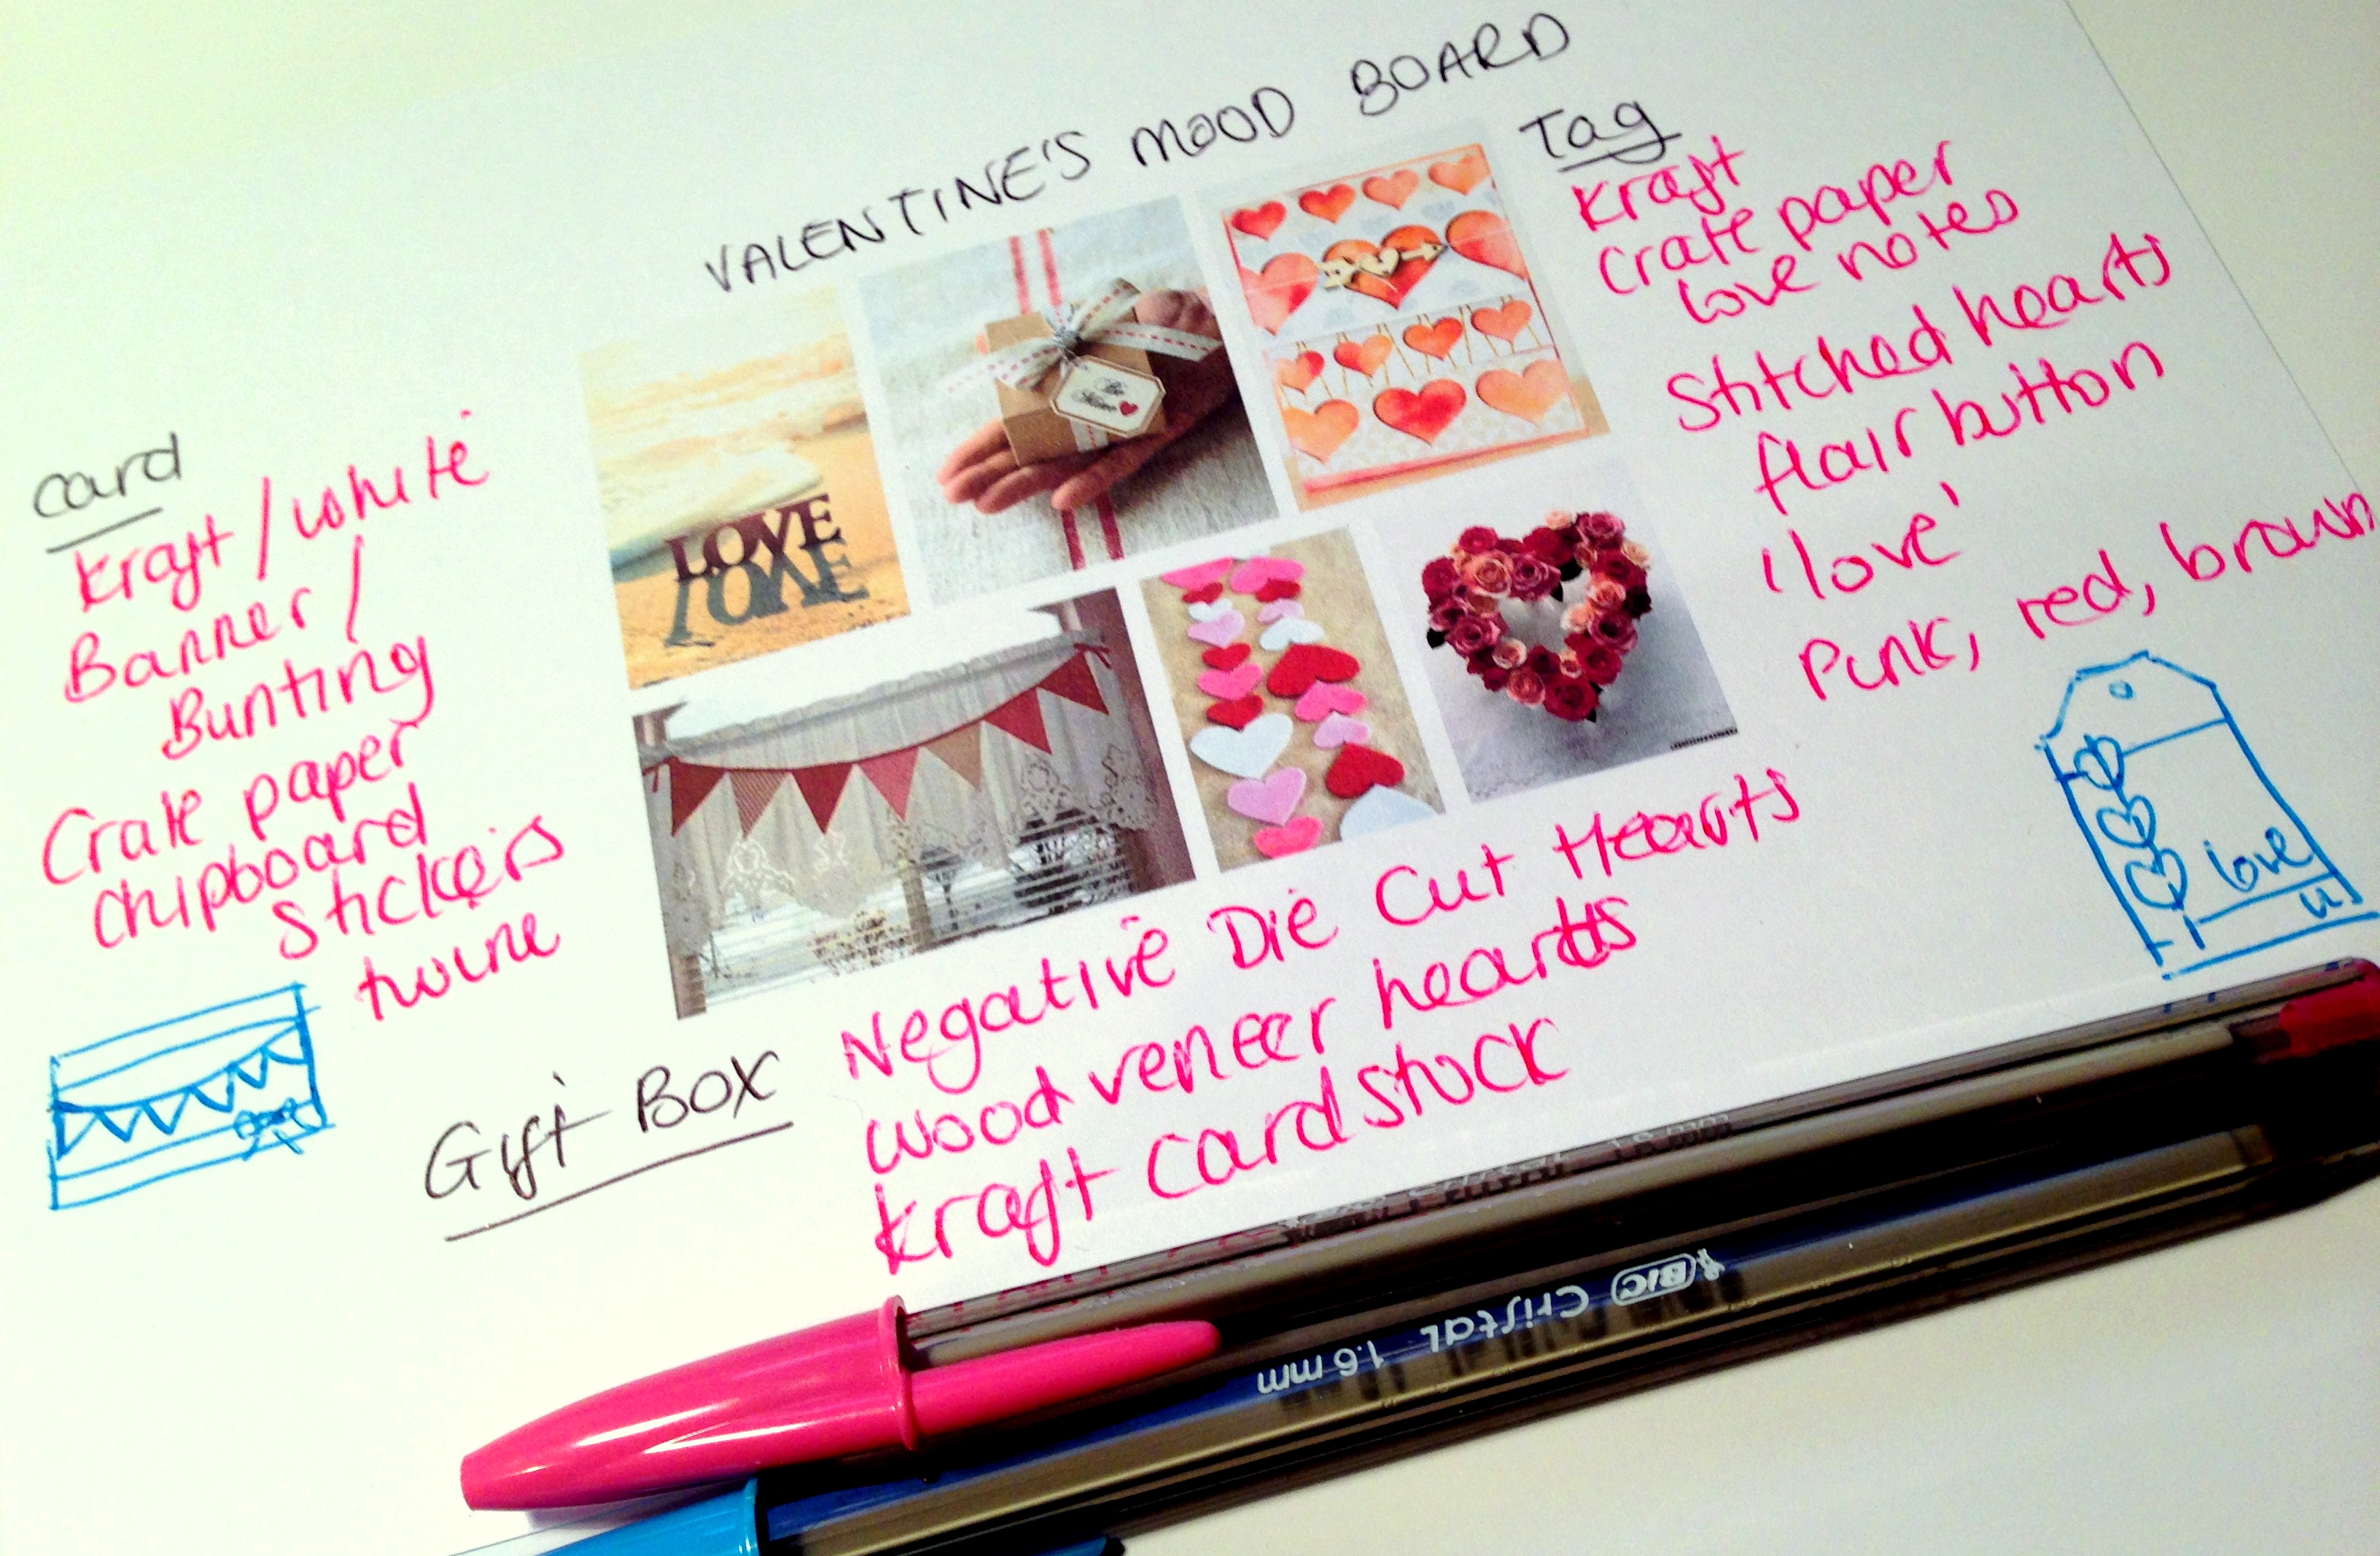 VALENTINE'S MOOD BOARD
card
kraft / white
Banner /
Bunting
Crate paper
chipboard
stickers
twine
LOVE
Be
Mine
Tag
Kraft
crate paper
love notes
Stitched hearts
flair button
'love'
Pink, red, brown
love
Gift Box
Negative Die Cut Hearts
wood veneer hearts
kraft cardstock
BIC Cristal 1.6mm